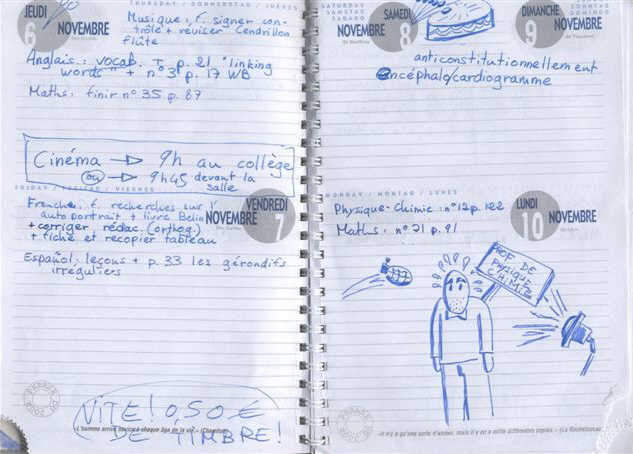 THURSDAY / DONNERSTAG / JUEVES
JEUDI
6
NOVEMBRE
Musique: f. signer con-
trôle + réviser Cendrillon
flûte
Anglais: vocab. + p. 21 "linking
words" + n°3 p. 17 WB
Maths: finir n° 35 p. 87
Cinéma → 9h au collège
ou → 9h45 devant la
salle
FRIDAY / FREITAG / VIERNES
VENDREDI
7
NOVEMBRE
Français: f. recherches sur l'
autoportrait + livre Belin
+ corriger rédac. (orthog.)
+ fiche et recopier tableau
Español: leçons + p. 33 les gérondifs
irréguliers
VITE! 0,50 €
DE TIMBRE!
SATURDAY
SAMSTAG
SABADO
SAMEDI
8
NOVEMBRE
SUNDAY
SONNTAG
DOMINGO
DIMANCHE
9
NOVEMBRE
anticonstitutionnellement
encéphalo/cardiogramme
MONDAY / MONTAG / LUNES
LUNDI
10
NOVEMBRE
Physique-Chimie: n°12 p. 122
Maths: n°21 p. 91
PROF DE
PHYSIQUE
CHIMIE